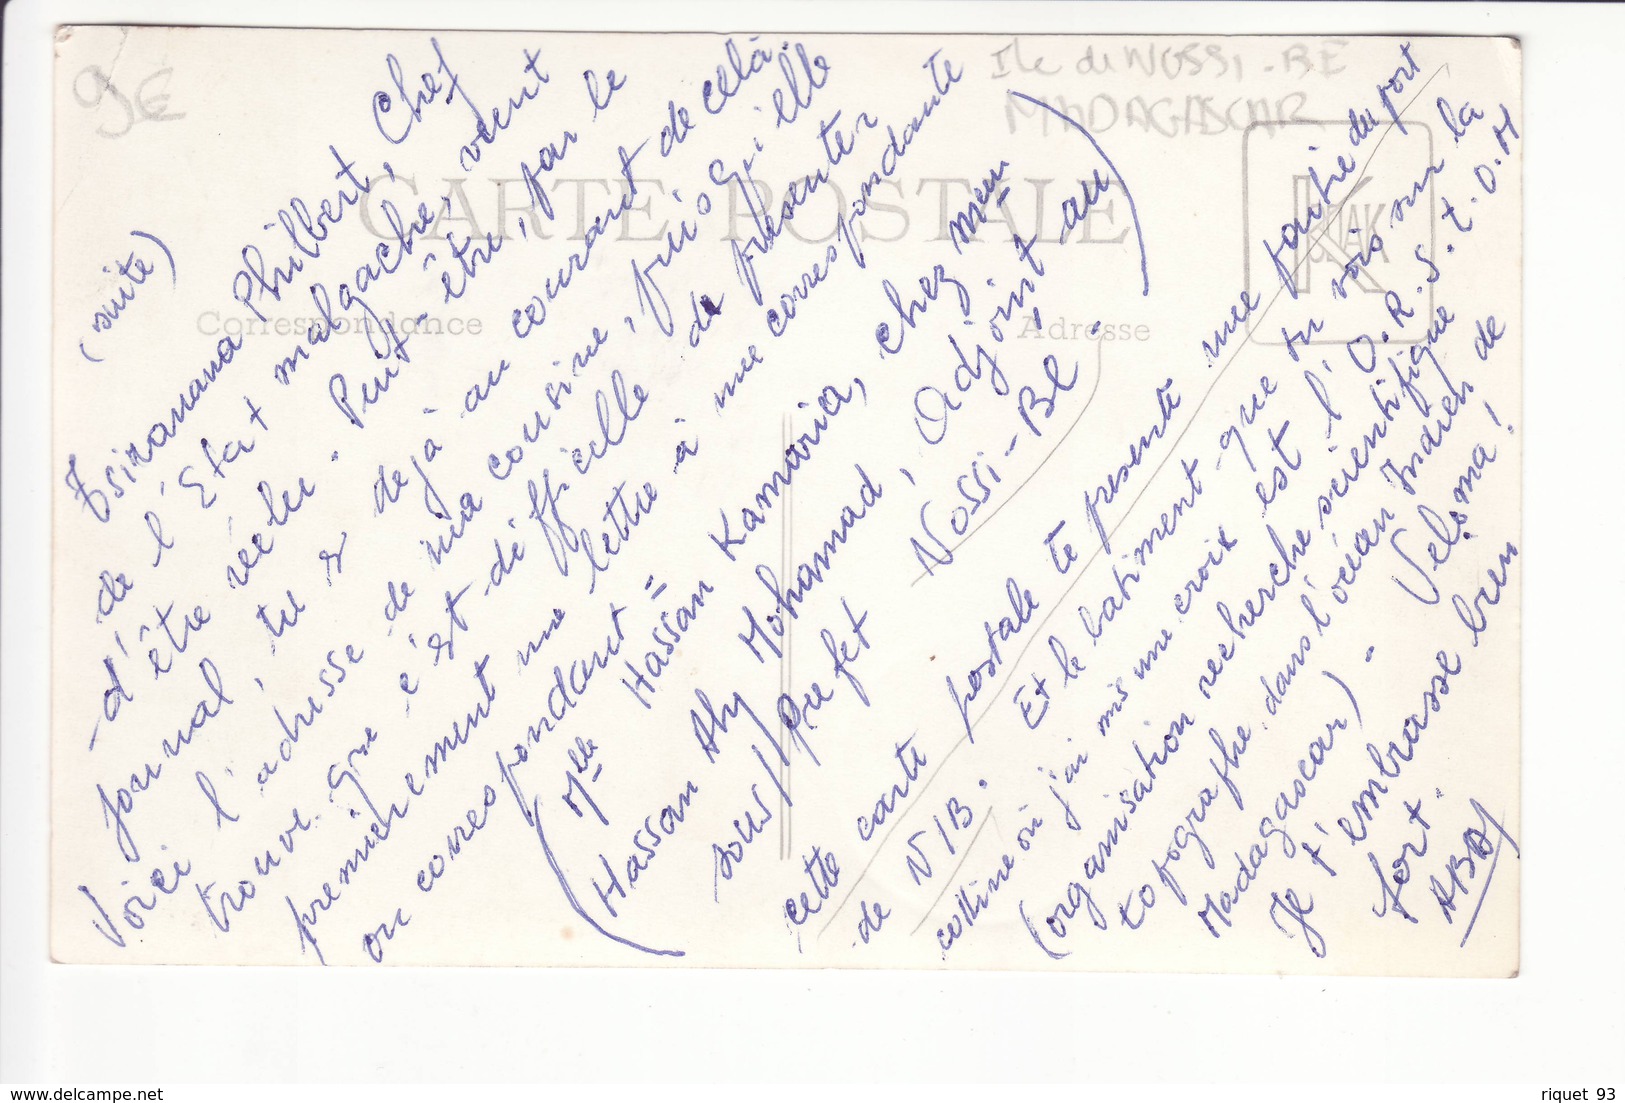 9€
Ile de NOSSI-BE
MADAGASCAR
CARTE POSTALE
Correspondance
Adresse
KODAK
(suite)
Tsiranana Philbert, Chef
de l'Etat malgache, vient
d'être réélu. Peut-être, par le
journal, tu es déjà au courant de celà.
Voici l'adresse de ma cousine, puisqu'elle
trouve que c'est difficille de présenter
premièrement une lettre à une correspondante
ou correspondant =
(Mlle Hassan Kamaria, chez Meur
Hassan Aly Mohamad, Adjoint au
sous/Préfet Nossi-Bé.)
cette carte postale te presente une partie du port
de N/B. Et le batiment que tu vois sur la
colline où j'ai mis une croix est l'O.R.S.T.O.M
(organisation recherche scientifique
topographe, dans l'océan Indien de
Madagascar) - Veloma!
Je t'embrasse bien
fort.
ABD/
delcampe.net
riquet 93